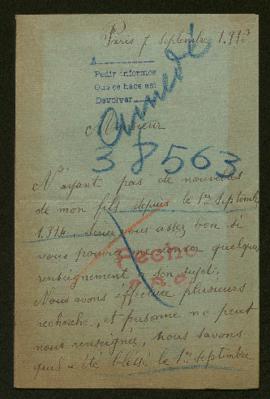 Paris 7 septembre 1.91
A
Pedir informes
Que se hace así
Devolver
Monsieur
38563
N'ayant pas de nouvelles
de mon fils depuis le 1er septembre
1.914, seriez vous assez bon si
vous pouviez me donner quelque
renseignement à son sujet.
Hecho
Nous avons effectué plusieurs
recherche, et personne ne peut
nous renseigner, nous savons
qu'il a été blessé le 1er septembre